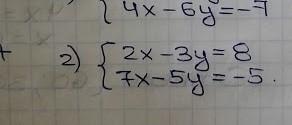 {4x-6y=-7
2) {2x-3y=8
7x-5y=-5.